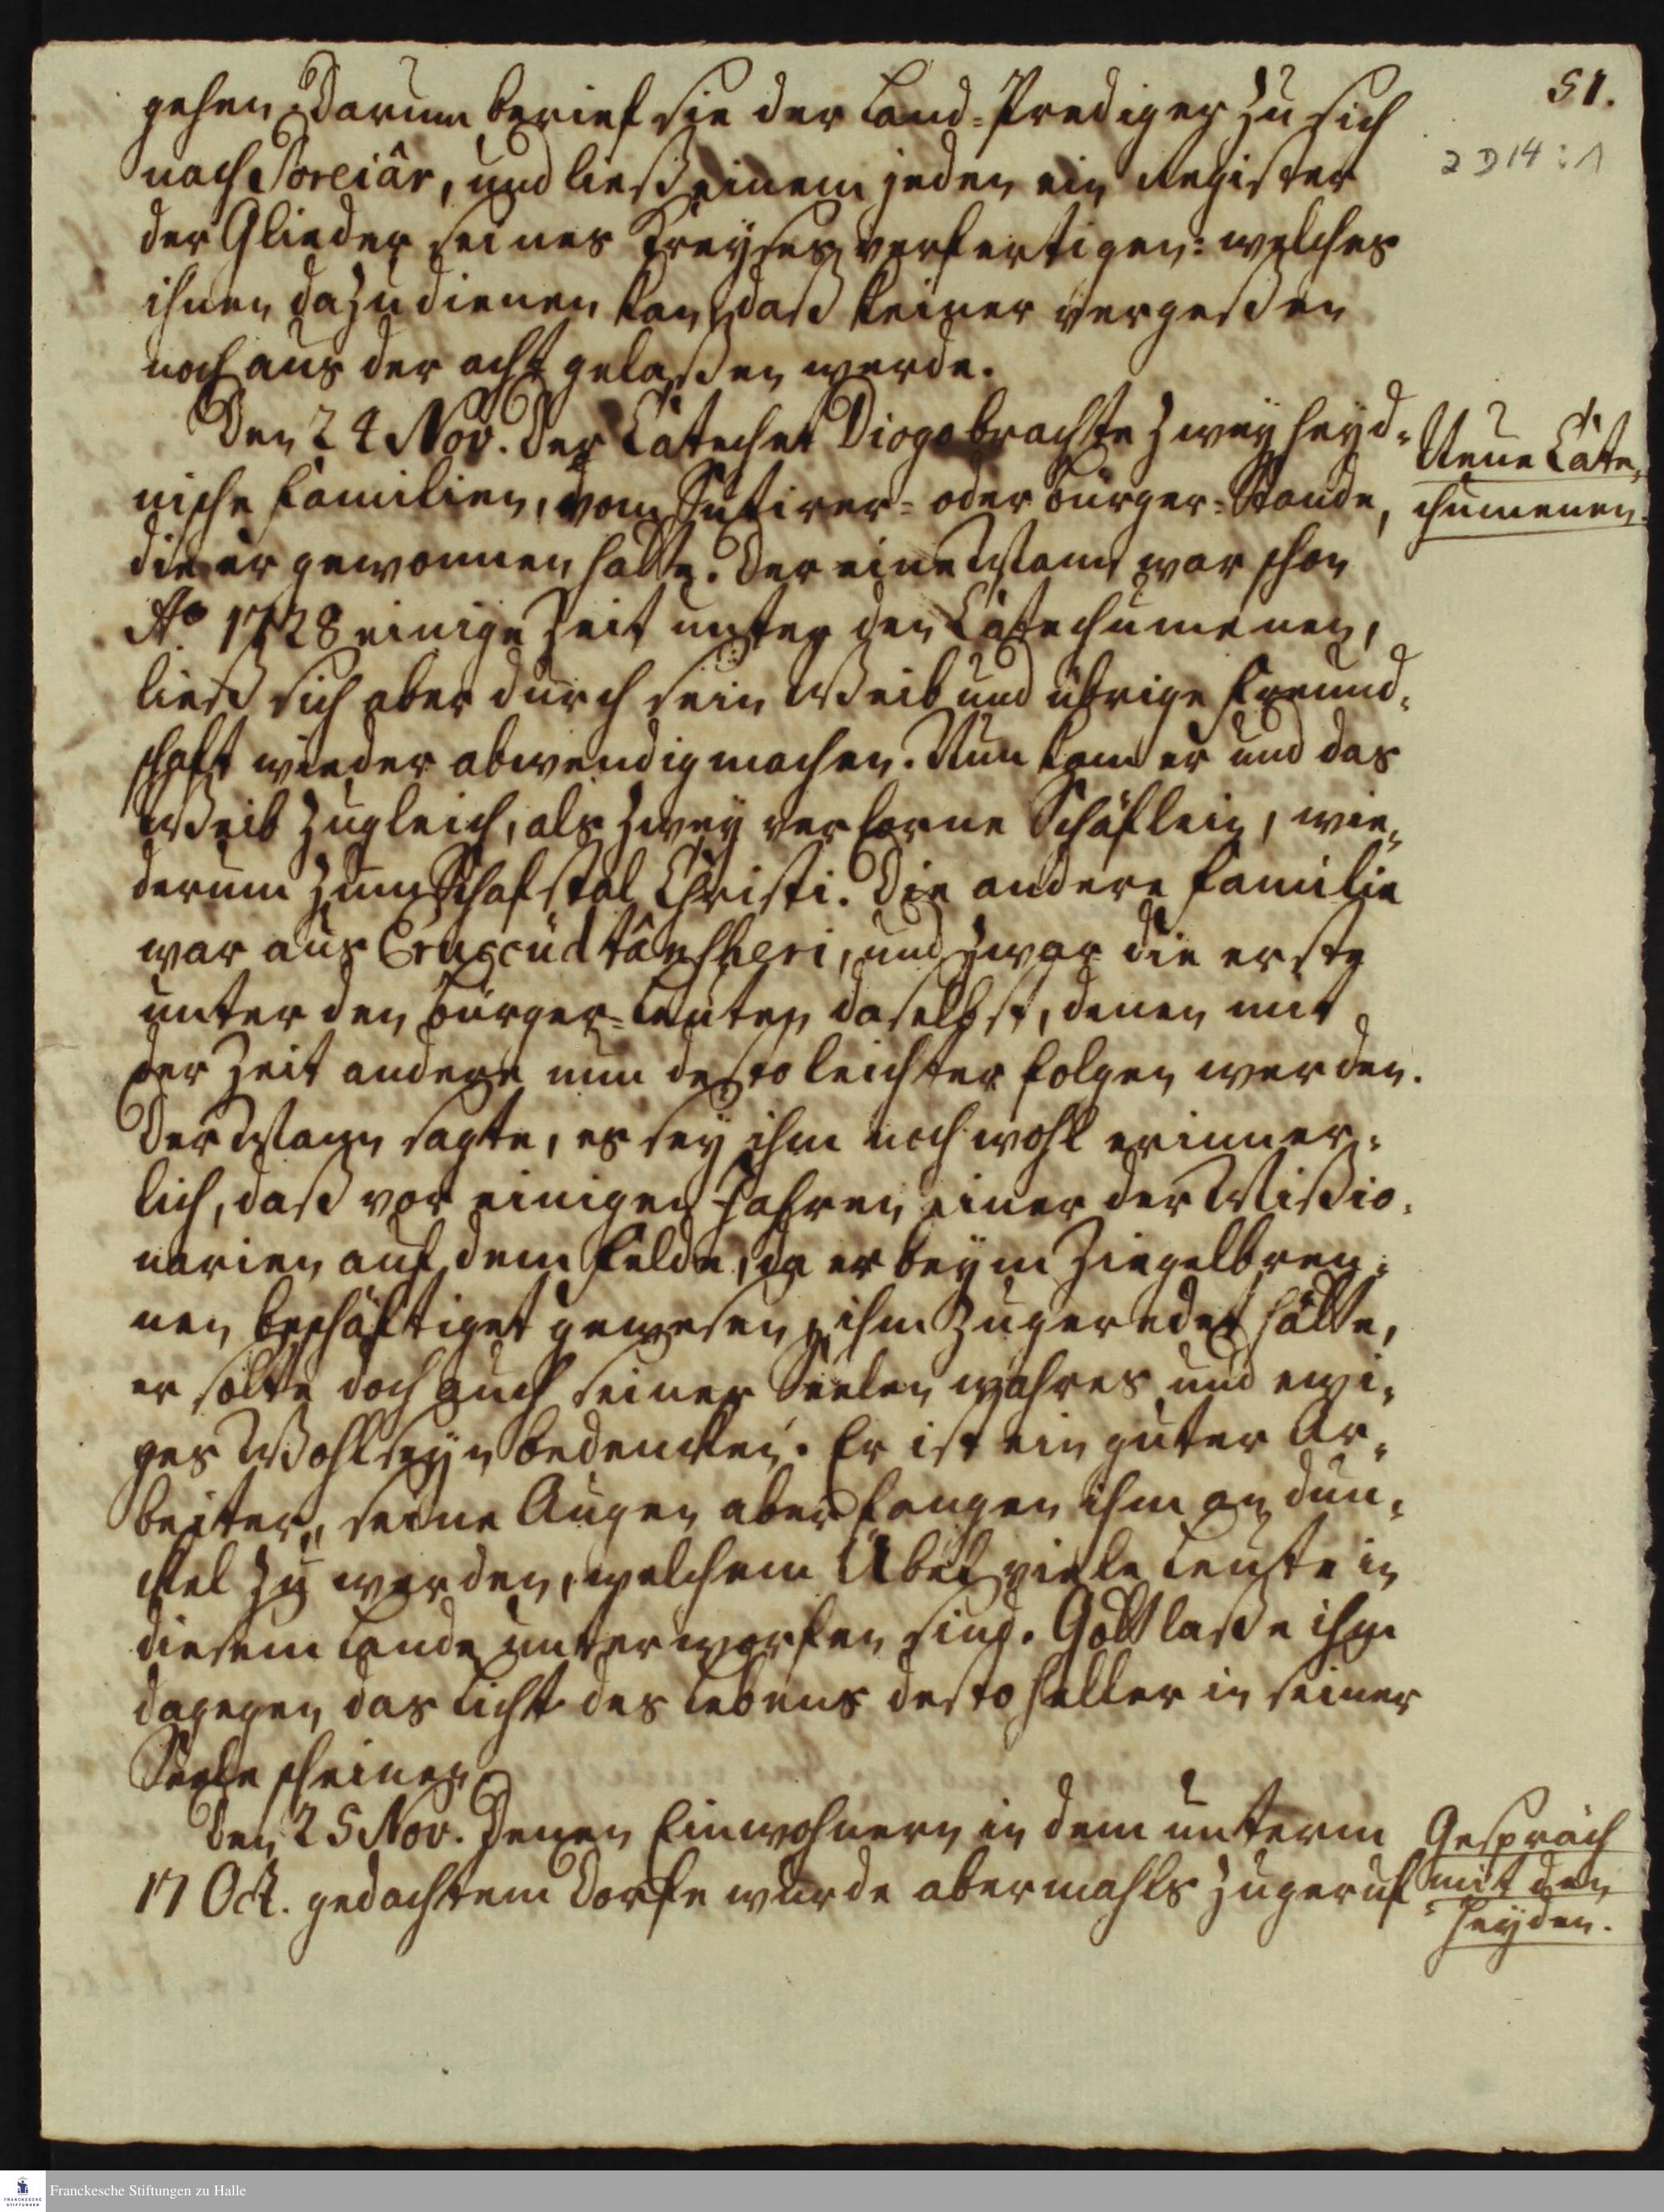 51.
2 D 14 : 1
gehen. Darum berief sie der Land-Prediger zu sich
nach Poreiâr, und ließ einem jeden ein Register
der Glieder seines Creyses verfertigen: welches
ihnen dazu dienen kan, daß keiner vergeßen
noch aus der acht gelaßen werde.
Den 24 Nov. Der Catechet Diogo brachte zwey heyd-
nische Familien, vom Sutirer- oder Bürger-Stande,
die er gewonnen hatte. Der eine Mann war schon
Ao. 1728 einige Zeit unter den Catechumenen,
ließ sich aber durch sein Weib und übrige Freund-
schaft wieder abwendig machen. Nun kam er und das
Weib zugleich, als zwey verlorne Schäflein, wie-
derum zum Schafstal Christi. Die andere Familie
war aus Erugcüdtânsheri, und zwar die erste
unter den Bürger-Leuten daselbst, denen mit
der Zeit andere nun desto leichter folgen werden.
Der Mann sagte, es sey ihm noch wohl erinner-
lich, daß vor einigen Jahren einer der Mißio-
narien auf dem Felde, da er beym Ziegelbren-
nen beschäftiget gewesen, ihm zugeredet hätte,
er solte doch auch seiner Seelen wahres und ewi-
ges Wohlseyn bedencken. Er ist ein guter Ar-
beiter, seine Augen aber fangen ihm an dun-
ckel zu werden, welchem Übel viele Leute in
diesem Lande unterworfen sind. Gott laße ihm
dagegen das Licht des Lebens desto heller in seiner
Seele scheinen.
Den 25 Nov. Denen Einwohnern in dem unterm
17 Oct. gedachtem Dorfe wurde abermahls zugeruf-
Neue Cate-
chumenen.
Gespräch
mit den
Heyden.
Franckesche Stiftungen zu Halle
FRANCKESCHE
STIFTUNGEN